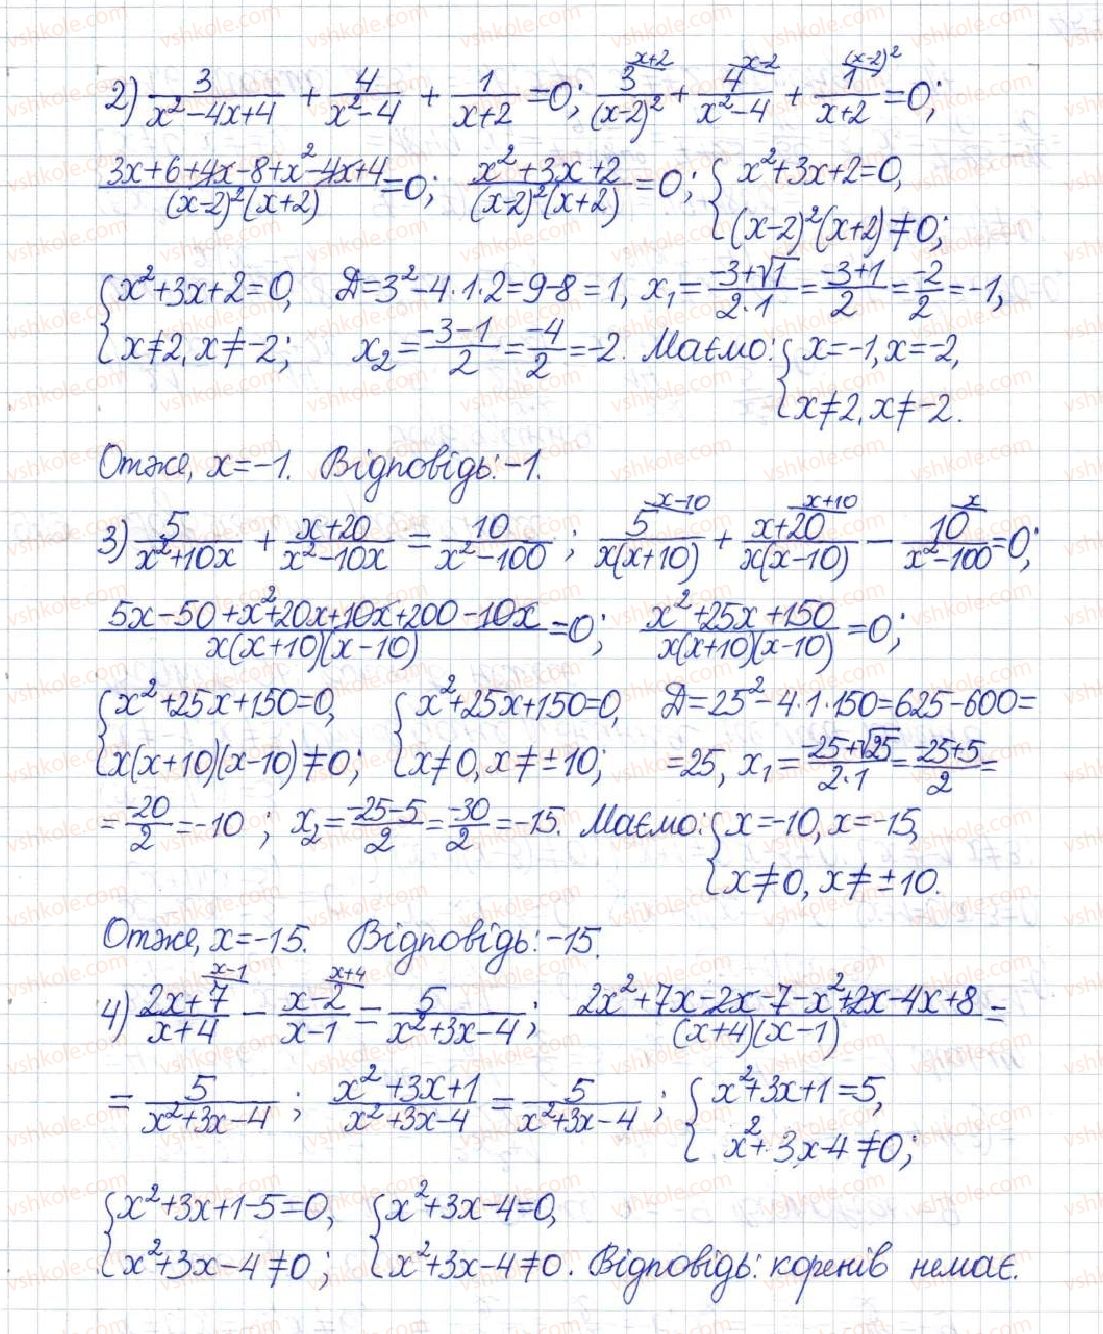 2) 3/(x²-4x+4) + 4/(x²-4) + 1/(x+2) = 0; 3^(x+2)/(x-2)² + 4^(x-2)/(x²-4) + 1^((x-2)²)/(x+2) = 0;
(3x+6+4x-8+x²-4x+4)/((x-2)²(x+2)) = 0; (x²+3x+2)/((x-2)²(x+2)) = 0; { x²+3x+2=0, (x-2)²(x+2)≠0;
{ x²+3x+2=0, x≠2, x≠-2; Д=3²-4·1·2=9-8=1, x₁=(-3+√1)/(2·1)=(-3+1)/2=-2/2=-1,
x₂=(-3-1)/2=-4/2=-2. Маємо: { x=-1, x=-2, x≠2, x≠-2.
Отже, x=-1. Відповідь: -1.
3) 5/(x²+10x) + (x+20)/(x²-10x) = 10/(x²-100); 5^(x-10)/(x(x+10)) + (x+20)^(x+10)/(x(x-10)) - 10^x/(x²-100) = 0;
(5x-50+x²+20x+10x+200-10x)/(x(x+10)(x-10)) = 0; (x²+25x+150)/(x(x+10)(x-10)) = 0;
{ x²+25x+150=0, x(x+10)(x-10)≠0; { x²+25x+150=0, x≠0, x≠±10; Д=25²-4·1·150=625-600=
=25, x₁=(-25+√25)/(2·1)=(-25+5)/2=
=-20/2=-10; x₂=(-25-5)/2=-30/2=-15. Маємо: { x=-10, x=-15, x≠0, x≠±10.
Отже, x=-15. Відповідь: -15.
4) (2x+7)^(x-1)/(x+4) - (x-2)^(x+4)/(x-1) = 5/(x²+3x-4); (2x²+7x-2x-7-x²+2x-4x+8)/((x+4)(x-1)) =
= 5/(x²+3x-4); (x²+3x+1)/(x²+3x-4) = 5/(x²+3x-4); { x²+3x+1=5, x²+3x-4≠0;
{ x²+3x+1-5=0, x²+3x-4≠0; { x²+3x-4=0, x²+3x-4≠0. Відповідь: коренів немає.
vshkole.com